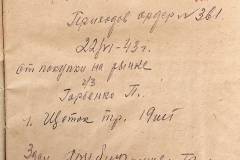 Приходов. ордер № 361.
22/VI-43г.
от покупки на рынке
ч/з
Горбенко П.
1. Щеток тр. 19 шт